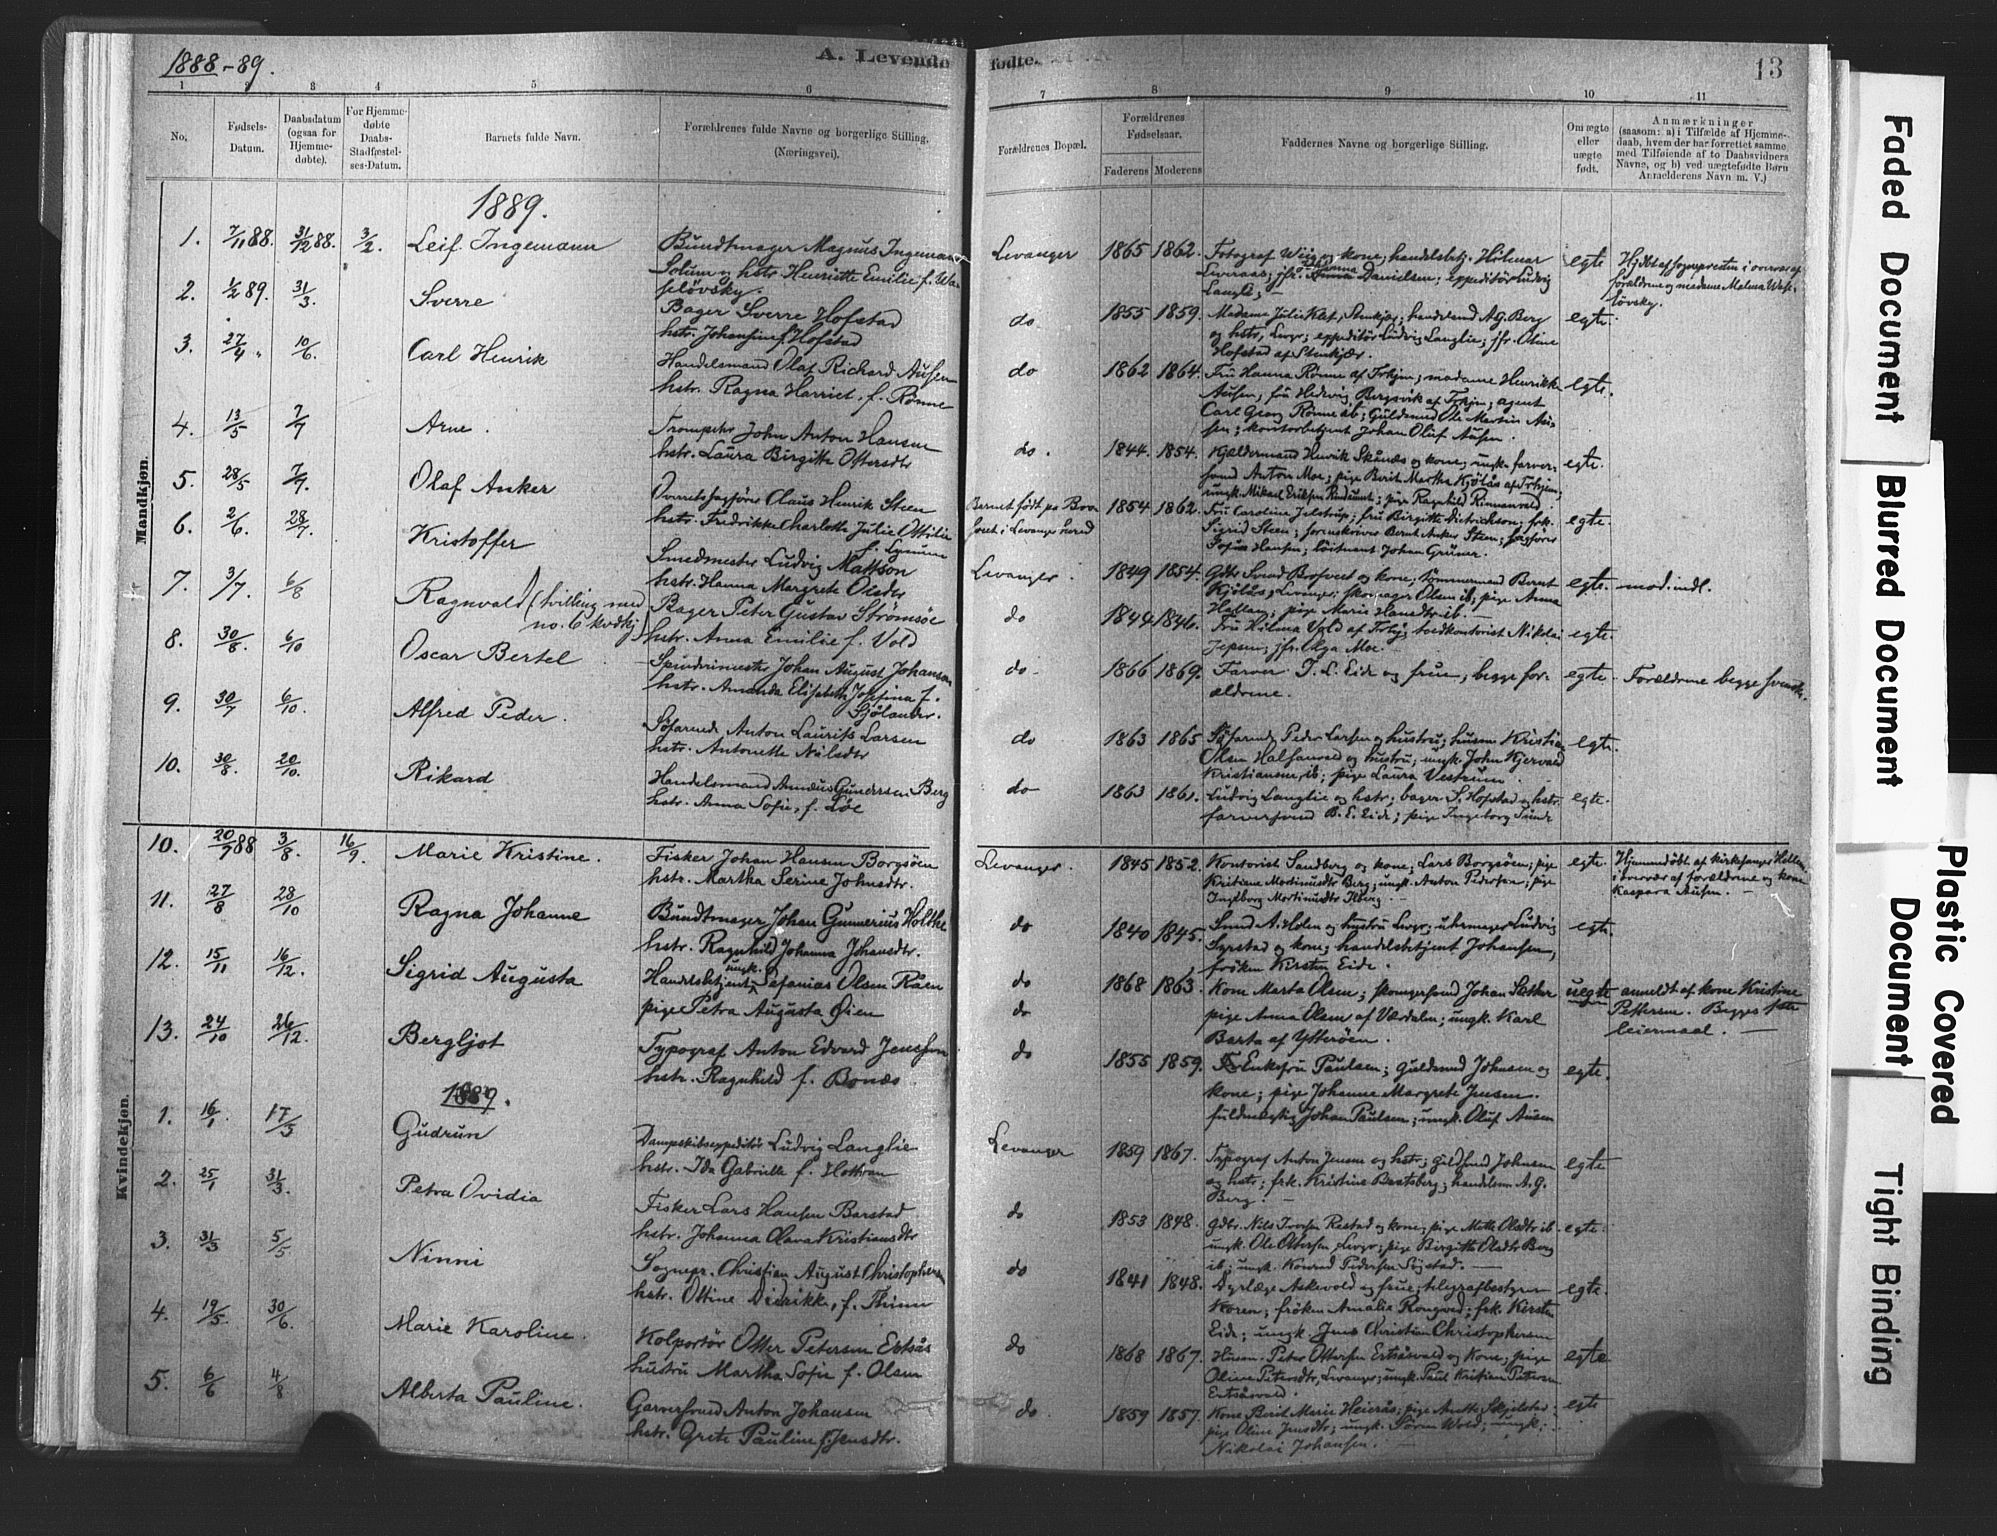 1888-89.
A. Levende
1 2 3 4 5 6
No.
Fødsels-
Datum.
Daabsdatum
(ogsaa for
Hjemme-
døbte).
For Hjemme-
døbte
Daabs-
Stadfæstel-
ses-Datum.
Barnets fulde Navn.
Forældrenes fulde Navne og borgerlige Stilling.
(Næringsvei).
Mandkjøn.
1889.
1. 7/11 88. 31/12 88. 3/2. Leif Ingemann
Bundtmager Magnus Ingeman
Solum og hstr. Henriette Emilie f. Wa-
seløvsky.
2. 1/2 89. 31/3. Sverre
Bager Sverre Hofstad
hstr. Johansine f. Hofstad
3. 27/4 " 10/6. Carl Henrik
Handelsmand Olaf Richard Aufsen
hstr. Ragna Harriet, f. Rønne
4. 13/5 7/7 Arne.
Trompeter John Anton Hansen
hstr. Laura Birgitte Ottersdtr
5. 28/5 7/7. Olaf Anker
Overretssagfører Olaus Henrik Steen
hstr. Fredrikke Charlotte Julie Ottilie
f. Lynum
6. 2/6. 28/7. Kristoffer
Smedmester Ludvig Mattson
hstr. Hanna Margrete Olsdtr
7. 3/7. 6/8 Ragnvald (tvilling med
no. 6 kvdkj)
Bager Peter Gustav Strømsøe
hstr. Anna Emilie f. Vold
8. 30/8. 6/10 Oscar Bertel
Spinderimester Johan August Johanson
hstr. Amanda Elisabeth Josefina f.
Sjølander.
9. 30/7 6/10. Alfred Peder.
Søfarende Anton Laurits Larsen
hstr. Antonette Nilsdtr
10. 30/8. 20/10. Rikard
Handelsmand Annæus Gundersen Berg
hstr. Anna Sofie, f. Løe
Kvindekjøn.
10. 20/7 88 3/8. 16/9. Marie Kristine.
Fisker Johan Hansen Borgsøen
hstr. Martha Serine Johnsdtr.
11. 27/8 28/10 Ragna Johanne
Bundtmager Johan Gunnerius Holthe
hstr. Ragnhild Johanna Johansdtr.
12. 15/11 16/12. Sigrid Augusta
Handelsbetjent ungk. Sefanias Olsen Råen
pige Petra Augusta Øien
13. 24/10 26/12. Bergljot
Typograf Anton Edvard Jenssen
hstr. Ragnhild f. Bonæs.
1889.
1. 16/1. 17/3 Gudrun
Dampskibsexpeditør Ludvig Langlie
hstr. Ida Gabrielle f. Hottran
2. 25/1 31/3. Petra Ovidia
Fisker Lars Hansen Barstad
hstr. Johanna Olava Kristiansdtr
3. 31/3 5/5 Ninni
Sognepr. Christian August Christophersen
hstr. Ottine Didrikke, f. Thinn
4. 19/5. 30/6. Marie Karoline.
Kolportør Otter Petersen Ertsås
hustru Martha Sofie f. Olsen
5. 6/6 4/8 Alberta Pauline.
Garversvend Anton Johansen
hstr. Grete Pauline Jensdtr.
fødte.
13
7 8 9 10 11
Forældrenes Bopæl.
Forældrenes
Fødselsaar.
Faderens Moderens
Faddernes Navne og borgerlige Stilling.
Om ægte
eller
uægte
født.
Anmærkninger
(saasom: a) i Tilfælde af Hjemme-
daab, hvem der har forrettet samme
med Tilføiende af to Daabsvidners
Navne, og b) ved uægtefødte Børn
Anmelderens Navn m. V.)
Levanger 1865 1862. Fotograf Wiig og kone; handelsbtj. Hilmar
Danielsen; expeditør Ludvig
Langli;
egte
Hjdbt af sognepresten i overvær af
forældrene og madame Malma Wase-
løvsky.
do. 1855 1859. Madame Julie Klef, Stenkjær; handelsmd A.G. Berg
og hstr, Levgr; expeditør Ludvig Langlie; jfr. Oline
Hofstad af Stenkjær.
egte.
do 1862 1864. Fru Hanna Rønne af Trhjm; madame Henrikke
Aufsen; fru Hedevig Bergsvik af Trhjm; agent
Carl Georg Rønne ib; Guldsmed Ole Martin Au-
sen; kontorbetjent Johan Oluf Aufsen.
egte.
do. 1844. 1854. Kjældermand Henrik Skånæs og kone; ungk. farver-
svend Anton Moe; pige Berit Martha Kjølås af Trhjem;
ungk. Mikael Eriksen; pige Ragnhild Rinnanvald.
egte.
Barnet født på Bro-
foset i Levanger herred
1854 1862. Fru Caroline Jelstrup; fru Birgitte Dietrichson; frk.
Sigrid Steen; sorenskriver Bernt Anker Steen; sagfører
Hansen; løitnant Johan Grüner.
egte.
Levanger. 1849 1854. Gdbr Svend Brosveet og kone; tømmermand Bernt
Kjølås, Levanger; skomager Olsen ib; pige Anna
Hallan; pige Marie Hansdtr ib.
egte. mod. indl.
do 1844 1846. Fru Hilma Vold af Trhj; toldkontorist Nikolai
Jepsen; jfr. Olga Moe.
egte.
do 1866 1869. Farver T. L. Eide og frue, begge for-
ældrene.
egte. Forældrene begge svenske.
do 1863 1865 Søfarende Peder Larsen og hustru; husm. Kristian
Olsen Halsanvald og hustru; ungk. John Kjervald
Kristiansen, ib; pige Laura Vestrum.
egte.
do 1863 1861. Ludvig Langlie og hstr; bager S. Hofstad og hstr.
farversvend B. E. Eide; pige Ingeborg Tunde
egte.
Levanger. 1845 1852. Kontorist Sandberg og kone; Lars Borgsøen; pige
Kristiane Mortinusdtr Berg; ungk. Anton Pedersen; pige
Ingeborg Mortinusdtr Ilberg.
egte.
Hjemmedøbt af kirkesanger Hallem
i overvær af forældrene og kone
Kaspara Aufsen.
do 1840 1845. Smed A. Holm og hustru Levgr; uhrmager Ludvig
Syrstad og kone; handelsbetjent Johansen,
frøken Kirsten Eide.
egte.
do
do
1868 1863. Kone Marta Olsen; skomgersvend Johan Sæther
pige Anna Olsen af Værdalen; ungk. Karl
Barta af Ytterøen.
uegte anmeldt af kone Kristine
Pettersen. Begges 1ste
leiermaal.
do 1855 1859. Enkefru Paulsen; guldsmed Johnsen og
kone; pige Johanne Margrete Jensen.
fuldmægtig Johan Paulsen; ungk. Oluf Ausen
egte.
Levanger 1859 1867. Typograf Anton Jensen og hstr; guldsmd Johnsen
og hstr; frk. Kristine Baatsberg; handelsm A. G.
Berg.
egte
do 1853 1848. Gdbr. Nils Iversen Restad og kone; pige Mette Olsdtr ib
ungk. Ole Ottersen, Levgr; pige Birgitte Olsdtr Berg
ib; ungk. Konrad Pedersen Sejstad.
egte.
do 1841 1848. Dyrlæge Askevold og frue; telegrafbestyrer
Koren; frøken Amalie Rongved; frk. Kirsten
Eide; ungk. Jens Christian Christophersen
egte.
do 1868 1867. Husm. Peter Ottersen Ertsåsvald og kone; pige
Oline Petersdtr, Levanger; ungk. Paul Kristian Petersen
Ertsåsvald.
egte
do 1859 1857. Kone Berit Marie Heieraas; pige Anette Skjelstad;
pige Oline Jensdtr; ungk. Søren Wold; ungk.
Nikolai Johansen.
egte
Faded Document
Blurred Document
Plastic Covered
Document
Tight Binding